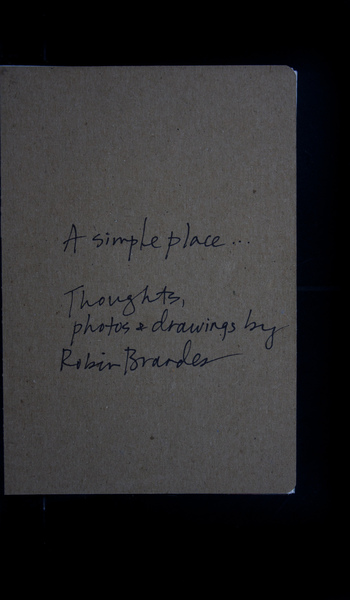 A simple place...
Thoughts,
photos & drawings by
Robin Brandes